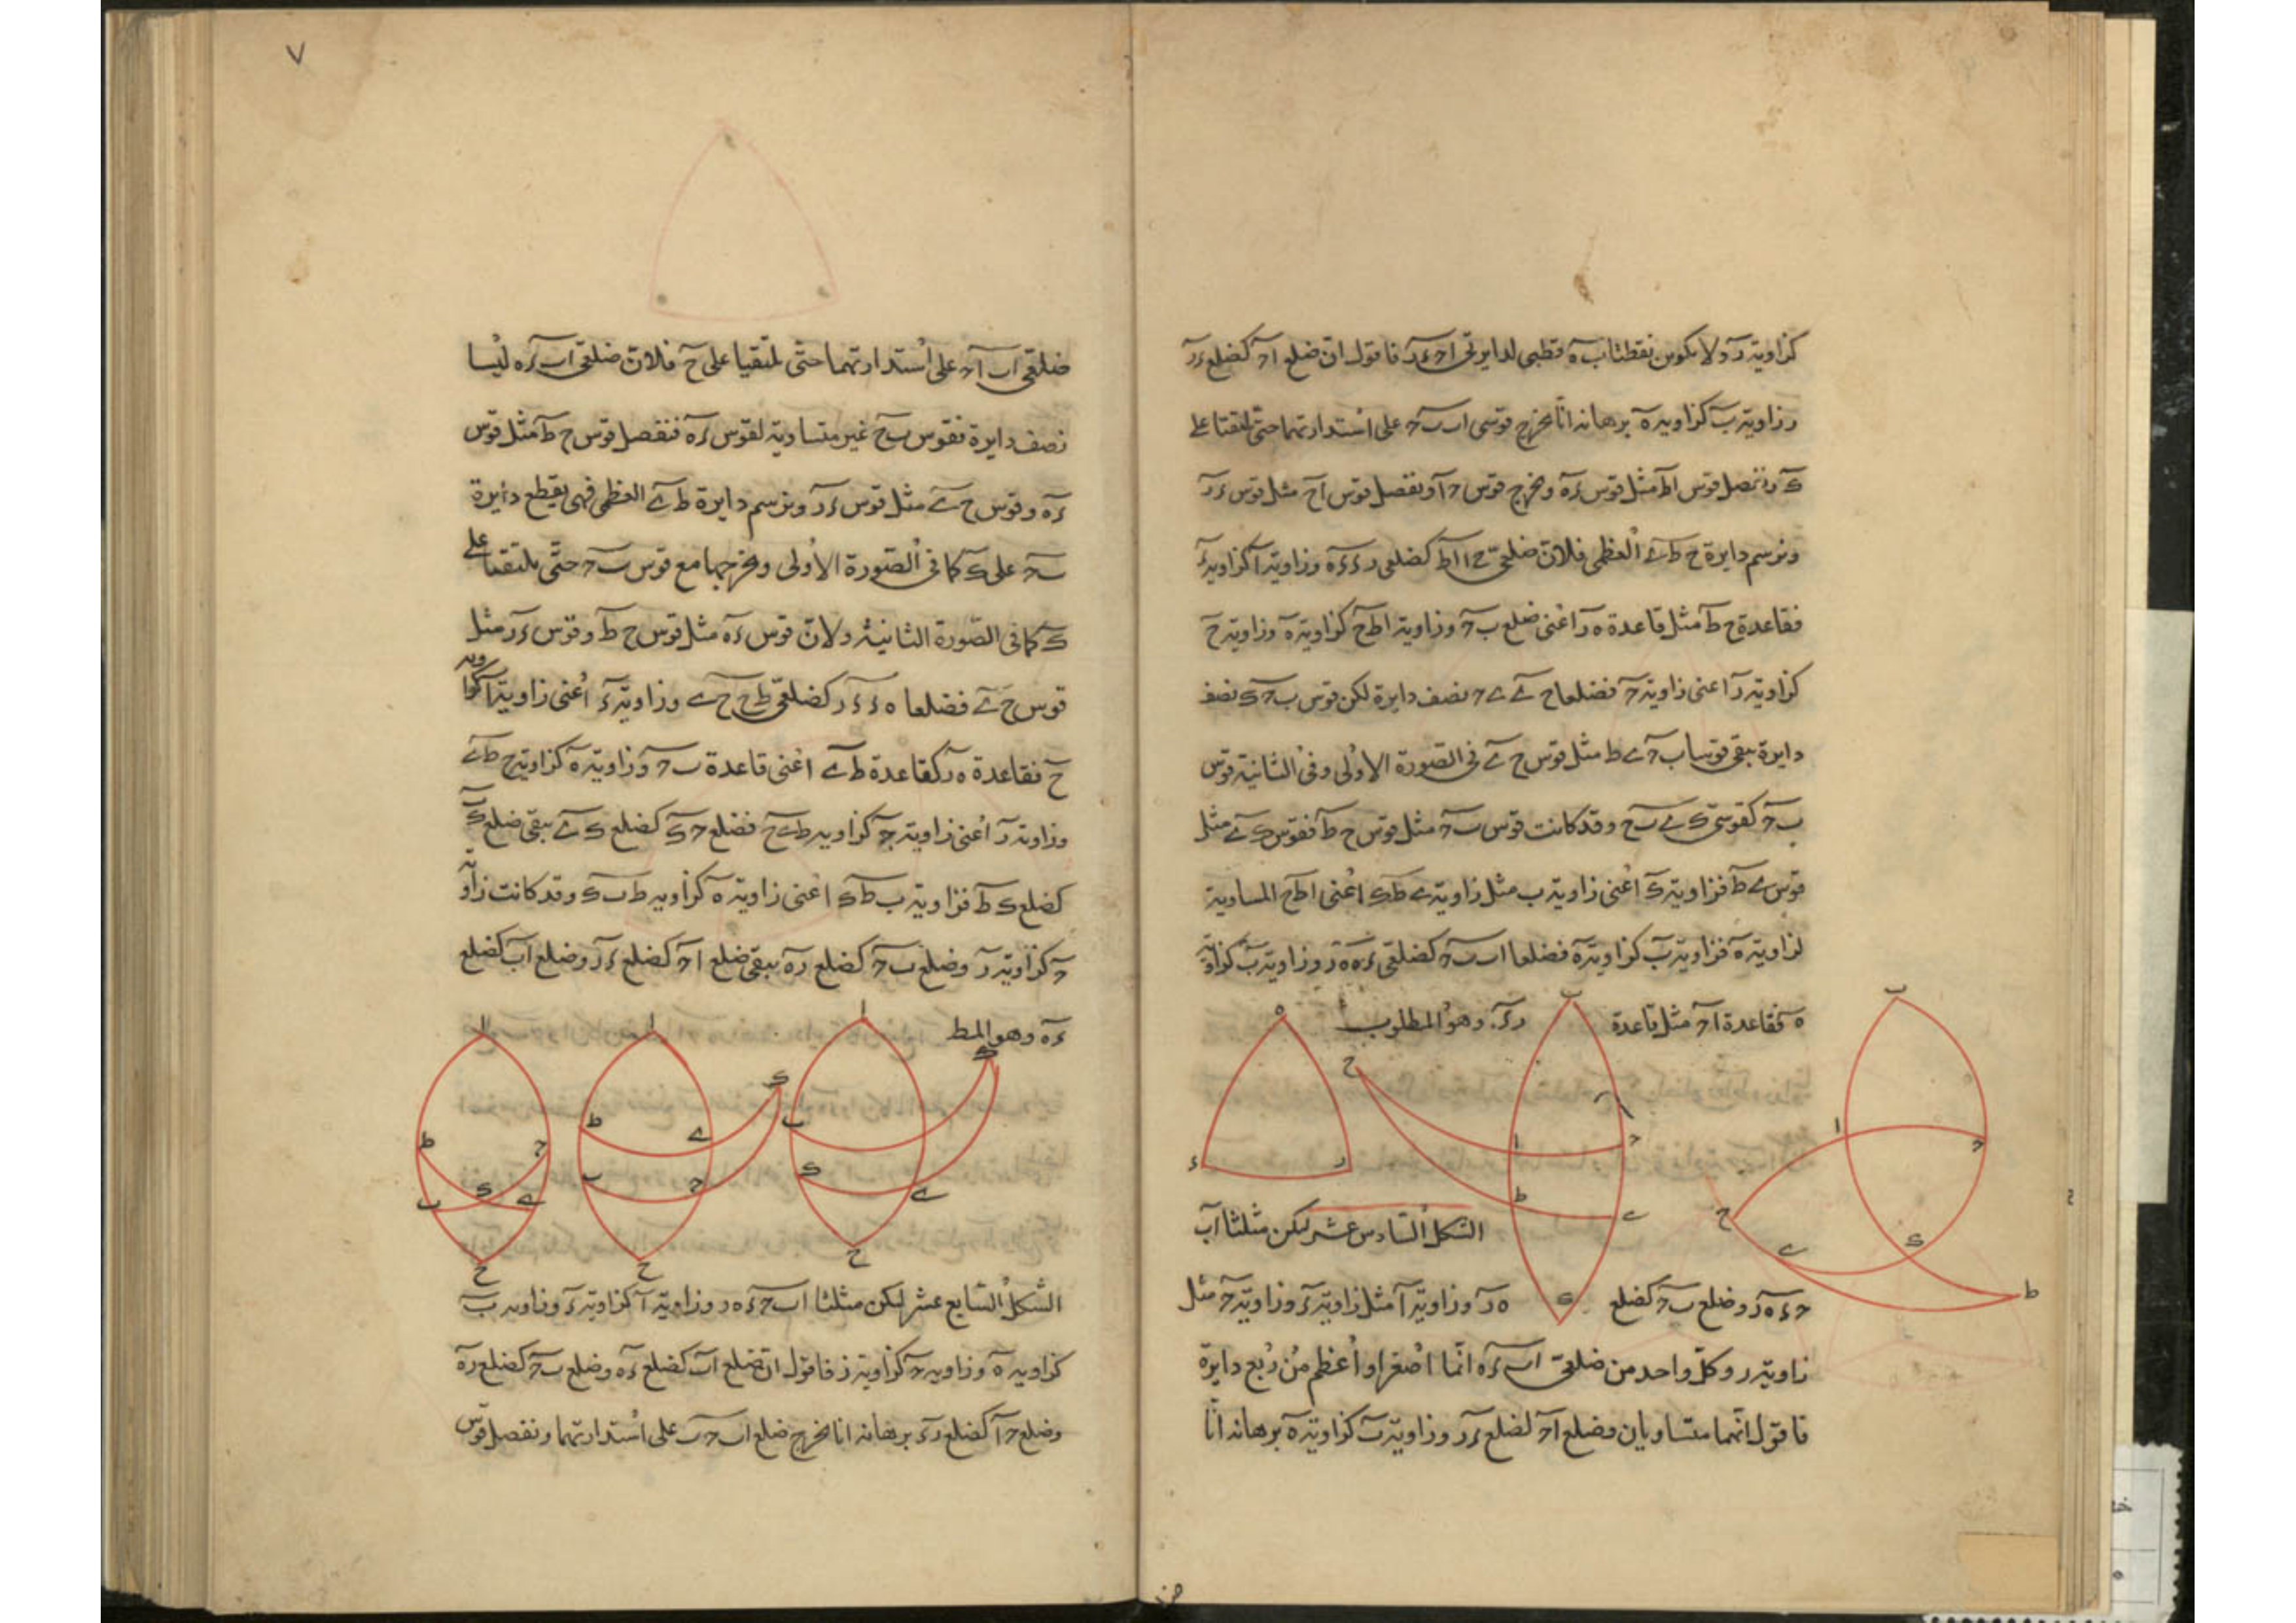 كزاوية ر ولا يكون نقطتا ب ه قطبي لدايرتي ا ح ء ر فاقول ان ضلع ا ح كضلع ء ر
وزاوية ب كزاوية ه برهانه انا نخرج قوسى ا ب ب ح على استدارتهما حتى يلتقيا على
ك ونفصل قوس ا ط مثل قوس ء ه ونخرج قوس ح ا ونفصل قوس ا ح مثل قوس ء ر
ونرسم دايرة ح ط ى العظمى فلان ضلعى ح ا ا ط كضلعى ر ء ء ه وزاوية ا كزاوية ء
فقاعدة ح ط مثل قاعدة ه ر اعنى ضلع ب ح وزاوية ا ط ح كزاوية ه وزاوية ح
كزاوية ر اعنى زاوية ح فضلعا ح ى ى ح نصف دايرة لكن قوس ب ح ك نصف
دايرة يبقى قوسا ب ح ى ط مثل قوس ح ى فى الصورة الاولى وفى الثانية قوس
ب ح كقوسى ك ى ب ح وقد كانت قوس ب ح مثل قوس ح ط فقوس ك ى مثل
قوس ى ط فزاوية ك اعنى زاوية ب مثل زاوية ى ط ك اعنى ا ط ح المساوية
لزاوية ه فزاوية ب كزاوية ه فضلعا ا ب ب ح كضلعى ء ه ه ر وزاوية ب كزاوية
ه فقاعدة ا ح مثل قاعدة ر ء وهو المطلوب
الشكل السادس عشر ليكن مثلثا ا ب
ح ء ه ر وضلع ب ح كضلع ه ر وزاوية ا مثل زاوية ء وزاوية ح مثل
زاوية ر وكل واحد من ضلعى ا ب ء ه انما اصغر او اعظم من ربع دايرة
فاقول انهما متساويان وضلع ا ح لضلع ء ر وزاوية ب كزاوية ه برهانه انا
٧
ضلعى ا ب ا ح على استدارتهما حتى يلتقيا على ح فلان ضلعى ا ب ء ه ليسا
نصف دايرة فقوس ب ح غير متساوية لقوس ء ه فنفصل قوس ح ط مثل قوس
ء ه وقوس ح ى مثل قوس ء ر ونرسم دايرة ط ى العظمى فهى يقطع دايرة
ب ح على ك كما فى الصورة الاولى ونخرجها مع قوس ب ح حتى يلتقيا على
ك كما فى الصورة الثانية ولان قوس ء ه مثل قوس ح ط وقوس ء ر مثل
قوس ح ى فضلعا ه ء ء ر كضلعى ط ح ح ى وزاوية ء اعنى زاوية ا كزاوية
ح فقاعدة ه ر كقاعدة ط ى اعنى قاعدة ب ح وزاوية ه كزاوية ح ط ى
وزاوية ر اعنى زاوية ح كزاوية ط ى ح فضلع ح ك كضلع ك ى يبقى ضلع ك ب
كضلع ك ط فزاوية ب ط ك اعنى زاوية ه كزاوية ط ب ك وقد كانت زاوية
ح كزاوية ر وضلع ب ح كضلع ر ه يبقى ضلع ا ح كضلع ء ر وضلع ا ب كضلع
ء ه وهو المط
الشكل السابع عشر ليكن مثلثا ا ب ح ء ه ر وزاوية ا كزاوية ء وزاوية ب
كزاوية ه وزاوية ح كزاوية ر فاقول ان ضلع ا ب كضلع ء ه وضلع ب ح كضلع ر ه
وضلع ح ا كضلع ر ء برهانه انا نخرج ضلع ا ب ح ب على استدارتهما ونفصل قوس